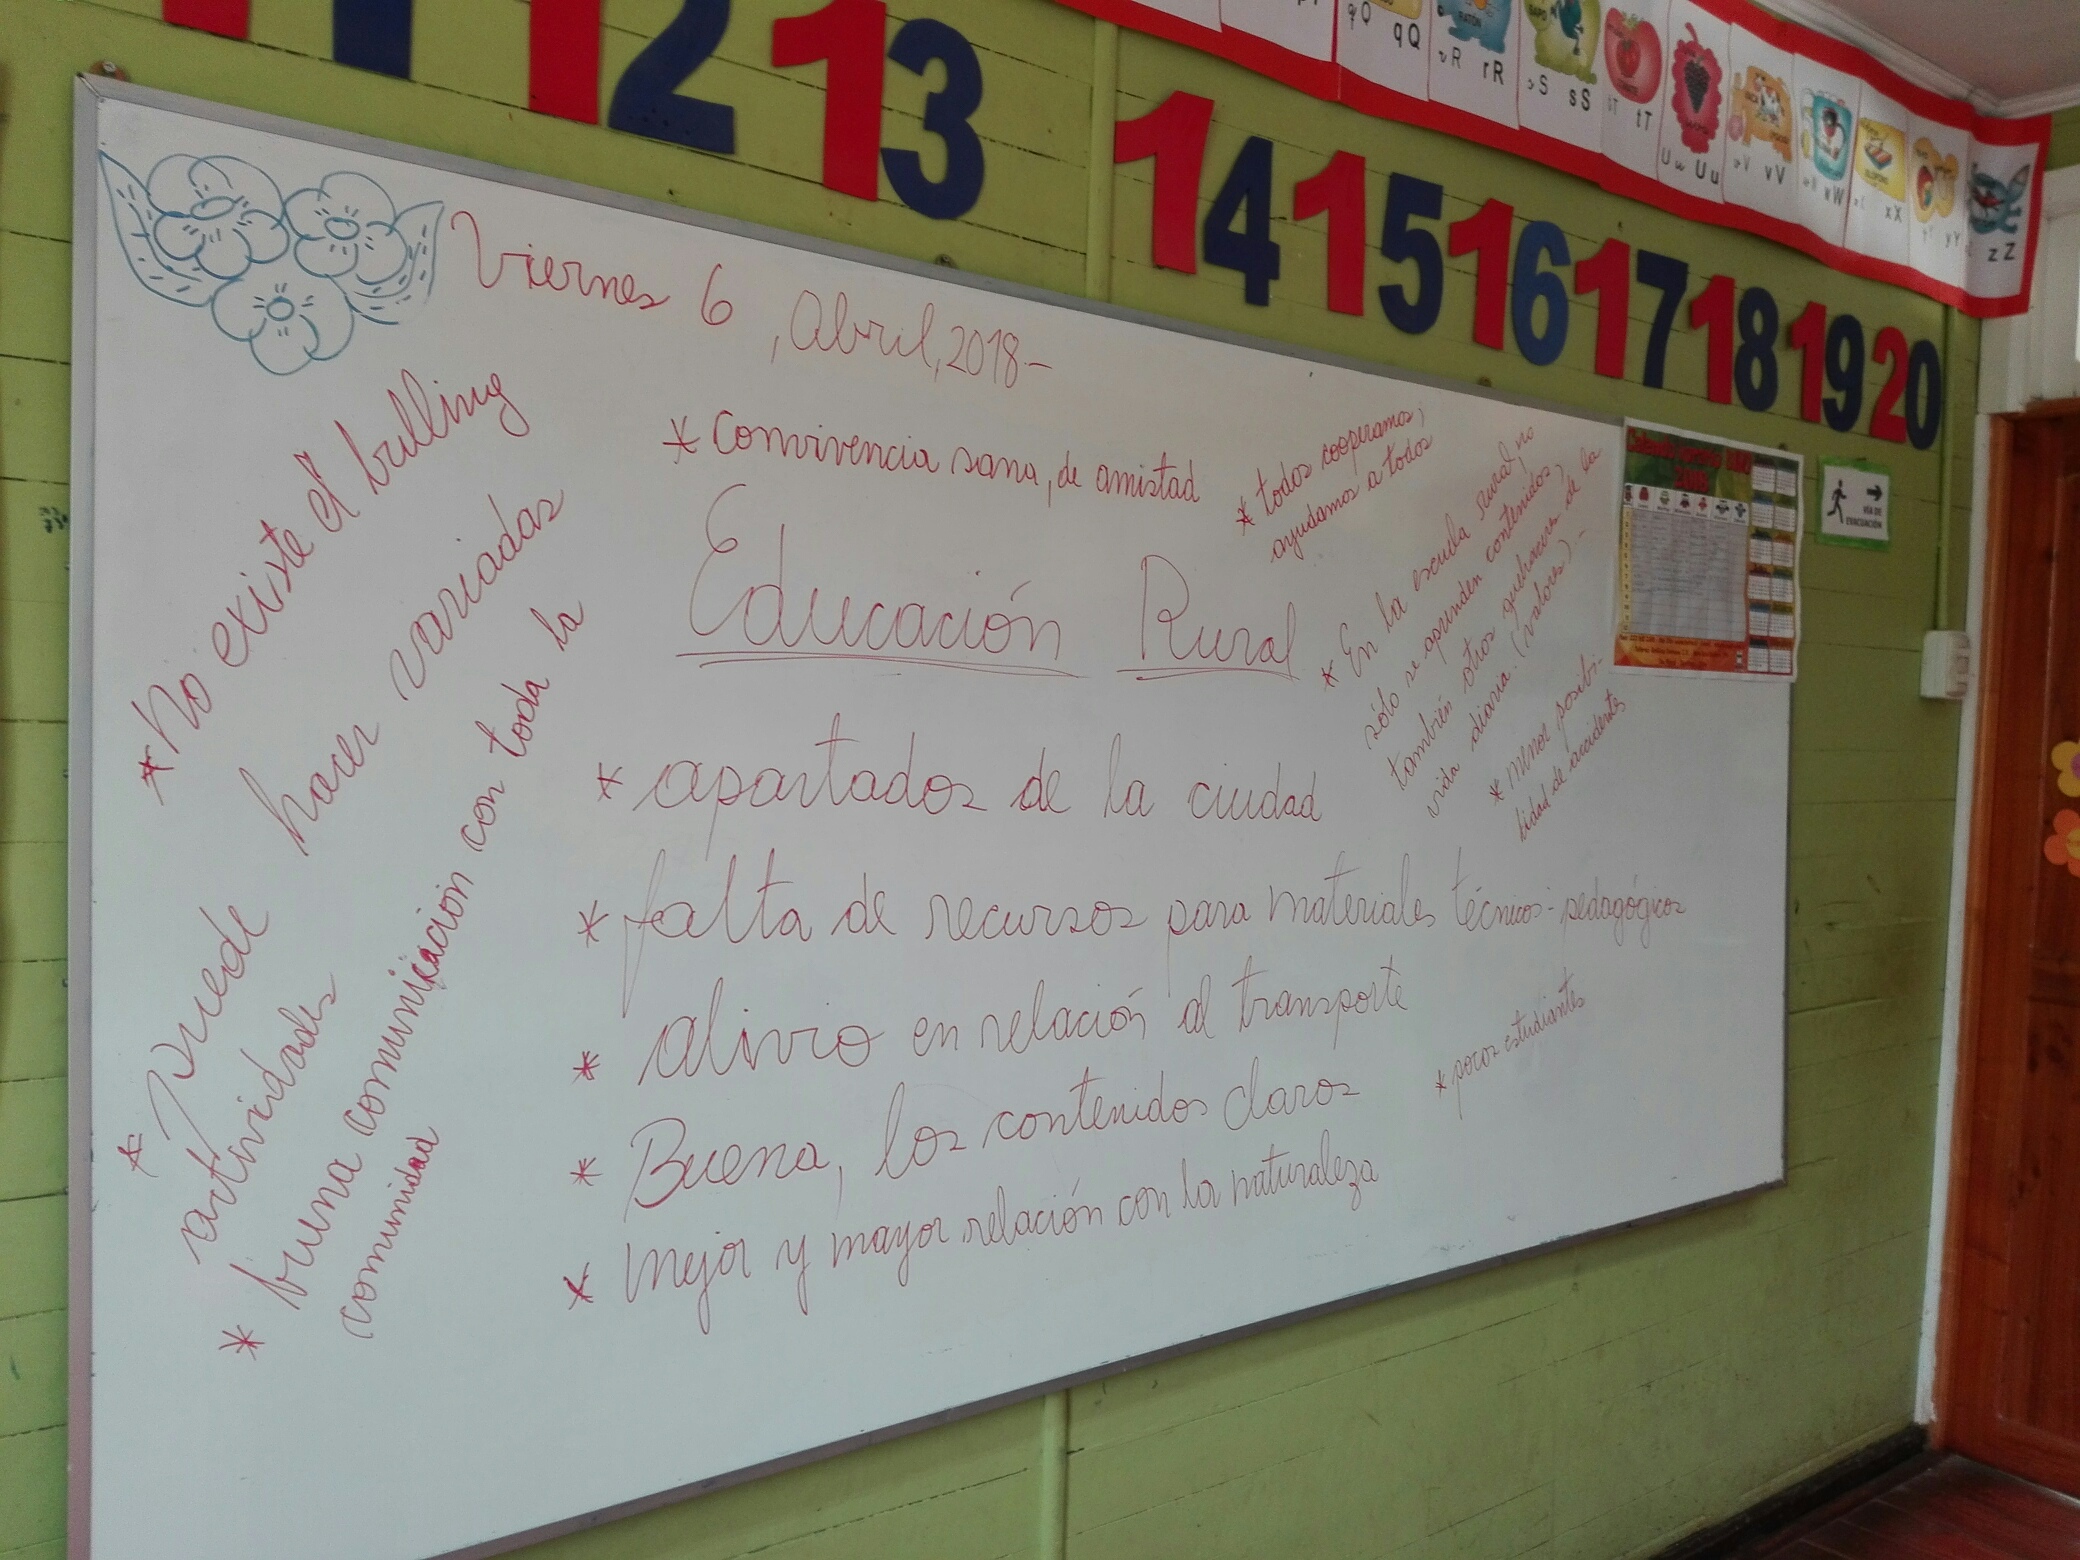 12 13 14 15 16 17 18 19 20
qQ qQ
RATÓN
rR rR
SAPO
sS sS
tT tT
Uu Uu
vV vV
wW
xX
yY
zZ
Viernes 6, Abril, 2018-
* No existe el "bulling
* Puede hacer variadas
actividades
* buena comunicación con toda la
comunidad
* Convivencia sana, de amistad
* todos cooperamos,
ayudamos a todos
Educación Rural
* En la escuela rural no
sólo se aprenden contenidos,
también otros quehaceres de la
vida diaria. (valores) -
* menor posibi-
lidad de accidentes
* apartados de la ciudad
* falta de recursos para materiales técnicos-pedagógicos
* alivio en relación al transporte
* Buena, los contenidos claros
* pocos estudiantes
* mejor y mayor relación con la naturaleza
VÍA DE
EVACUACIÓN